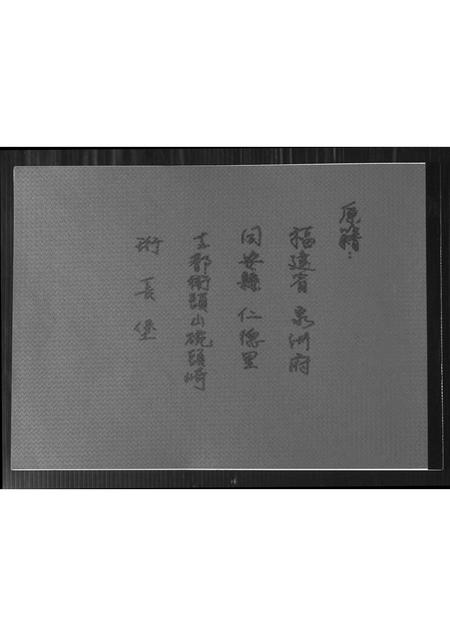 原籍：
福建省 泉洲府
同安縣 仁德里
都衙頭山碗頭崎
珩 長 堡